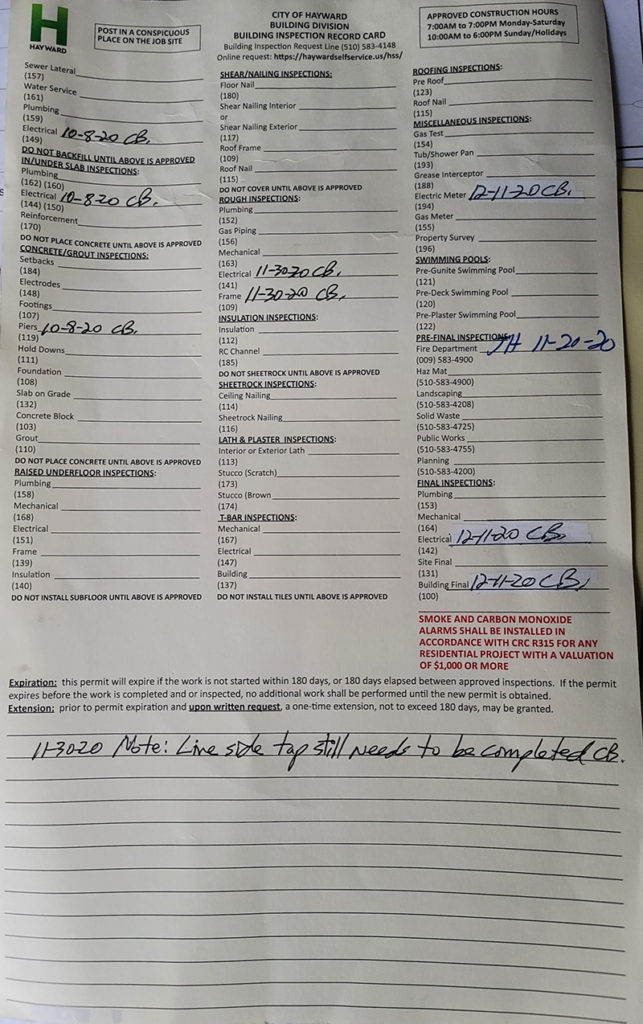 H
HAYWARD
POST IN A CONSPICUOUS
PLACE ON THE JOB SITE
CITY OF HAYWARD
BUILDING DIVISION
BUILDING INSPECTION RECORD CARD
Building Inspection Request Line (510) 583-4148
Online request: https://haywardselfservice.us/hss/
APPROVED CONSTRUCTION HOURS
7:00AM to 7:00PM Monday-Saturday
10:00AM to 6:00PM Sunday/Holidays
Sewer Lateral
(157)
Water Service
(161)
Plumbing
(159)
Electrical 10-8-20 CB.
(149)
DO NOT BACKFILL UNTIL ABOVE IS APPROVED
IN/UNDER SLAB INSPECTIONS:
Plumbing
(162) (160)
Electrical 10-8-20 CB.
(144) (150)
Reinforcement
(170)
DO NOT PLACE CONCRETE UNTIL ABOVE IS APPROVED
CONCRETE/GROUT INSPECTIONS:
Setbacks
(184)
Electrodes
(148)
Footings
(107)
Piers 10-8-20 CB.
(119)
Hold Downs
(111)
Foundation
(108)
Slab on Grade
(132)
Concrete Block
(103)
Grout
(110)
DO NOT PLACE CONCRETE UNTIL ABOVE IS APPROVED
RAISED UNDERFLOOR INSPECTIONS:
Plumbing
(158)
Mechanical
(168)
Electrical
(151)
Frame
(139)
Insulation
(140)
DO NOT INSTALL SUBFLOOR UNTIL ABOVE IS APPROVED
SHEAR/NAILING INSPECTIONS:
Floor Nail
(180)
Shear Nailing Interior
or
Shear Nailing Exterior
(117)
Roof Frame
(109)
Roof Nail
(115)
DO NOT COVER UNTIL ABOVE IS APPROVED
ROUGH INSPECTIONS:
Plumbing
(152)
Gas Piping
(156)
Mechanical
(163)
Electrical 11-30-20 CB.
(141)
Frame 11-30-20 CB.
(109)
INSULATION INSPECTIONS:
Insulation
(112)
RC Channel
(185)
DO NOT SHEETROCK UNTIL ABOVE IS APPROVED
SHEETROCK INSPECTIONS:
Ceiling Nailing
(114)
Sheetrock Nailing
(116)
LATH & PLASTER INSPECTIONS:
Interior or Exterior Lath
(113)
Stucco (Scratch)
(173)
Stucco (Brown
(174)
T-BAR INSPECTIONS:
Mechanical
(167)
Electrical
(147)
Building
(137)
DO NOT INSTALL TILES UNTIL ABOVE IS APPROVED
ROOFING INSPECTIONS:
Pre Roof
(123)
Roof Nail
(115)
MISCELLANEOUS INSPECTIONS:
Gas Test
(154)
Tub/Shower Pan
(193)
Grease Interceptor
(188)
Electric Meter 12-11-20 CB.
(194)
Gas Meter
(155)
Property Survey
(196)
SWIMMING POOLS:
Pre-Gunite Swimming Pool
(121)
Pre-Deck Swimming Pool
(120)
Pre-Plaster Swimming Pool
(122)
PRE-FINAL INSPECTIONS:
Fire Department JH 11-20-20
(009) 583-4900
Haz Mat
(510-583-4900)
Landscaping
(510-583-4208)
Solid Waste
(510-583-4725)
Public Works
(510-583-4755)
Planning
(510-583-4200)
FINAL INSPECTIONS:
Plumbing
(153)
Mechanical
(164)
Electrical 12-11-20 CB.
(142)
Site Final
(131)
Building Final 12-11-20 CB.
(100)
SMOKE AND CARBON MONOXIDE
ALARMS SHALL BE INSTALLED IN
ACCORDANCE WITH CRC R315 FOR ANY
RESIDENTIAL PROJECT WITH A VALUATION
OF $1,000 OR MORE
Expiration: this permit will expire if the work is not started within 180 days, or 180 days elapsed between approved inspections. If the permit
expires before the work is completed and or inspected, no additional work shall be performed until the new permit is obtained.
Extension: prior to permit expiration and upon written request, a one-time extension, not to exceed 180 days, may be granted.
11-30-20 Note: Line side tap still needs to be completed CB.